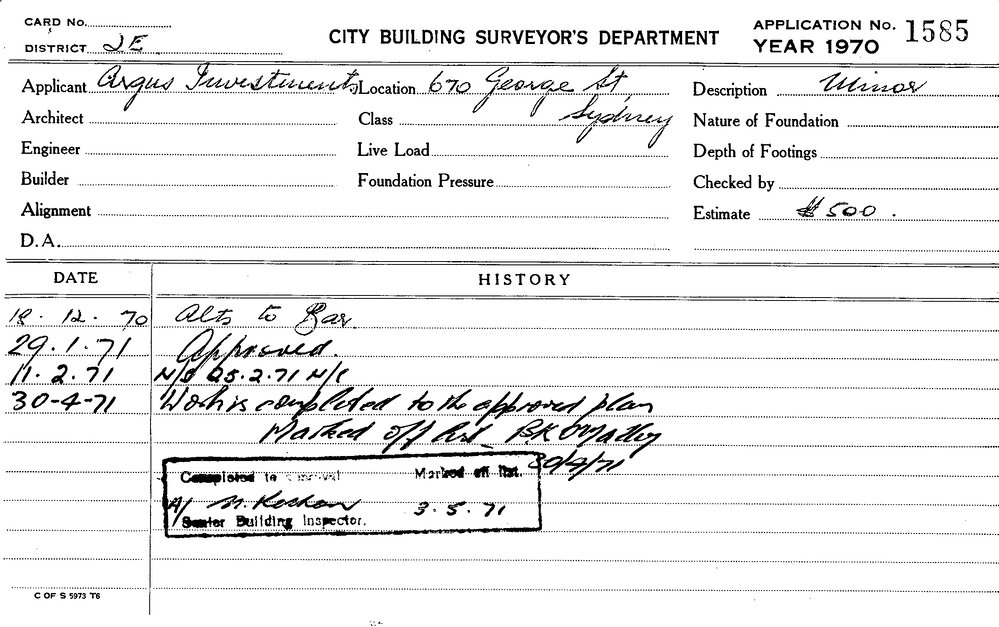 CARD No.
DISTRICT 2E
CITY BUILDING SURVEYOR'S DEPARTMENT
APPLICATION No. 1585
YEAR 1970
Applicant Argus Investments Location 670 George St, Sydney Description Minor
Architect Class Nature of Foundation
Engineer Live Load Depth of Footings
Builder Foundation Pressure Checked by
Alignment Estimate $500.
D.A.
DATE HISTORY
18.12.70 Alts to Bar.
29.1.71 Approved.
11.2.71 N/S 25.2.71 N/S
30-4-71 Work is completed to the approved plan
Marked off list
30/4/71
Completed to approval Marked off list.
A/ 3.5.71
Senior Building Inspector.
C OF S 5973 T6